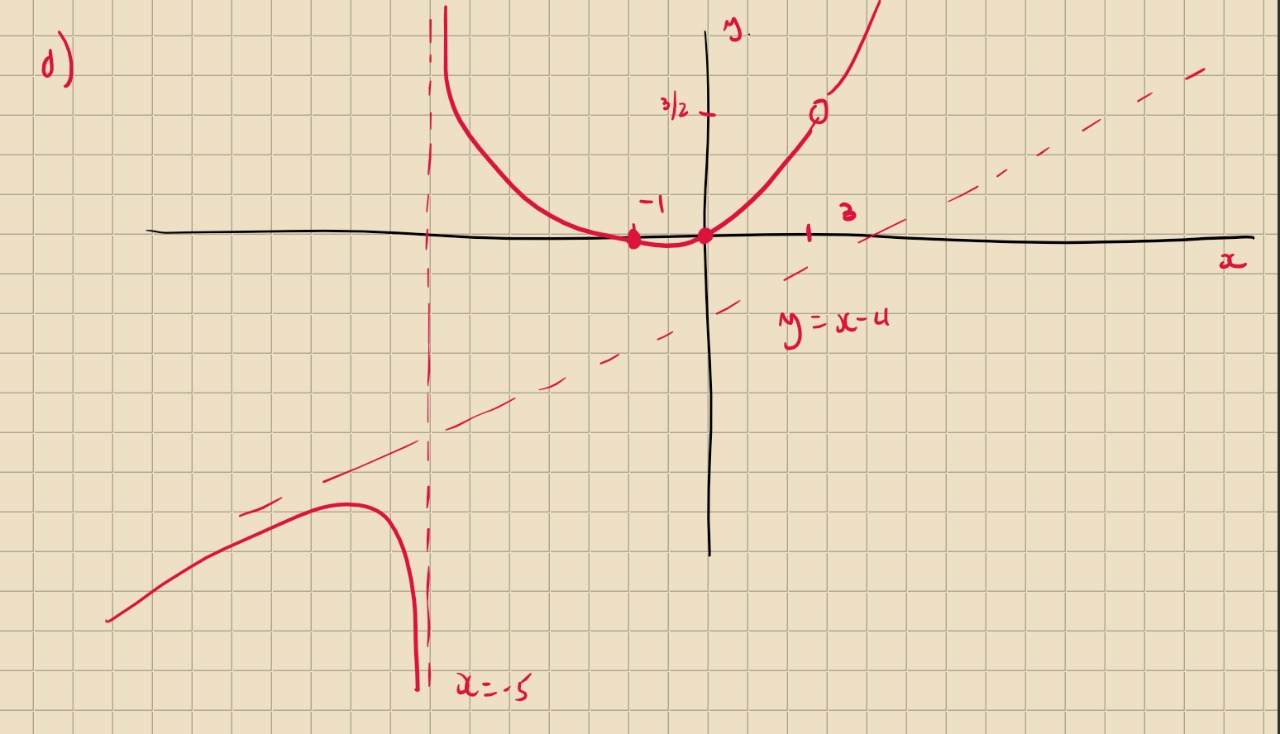 d)
y
3/2
-1
3
x
y = x-4
x = -5